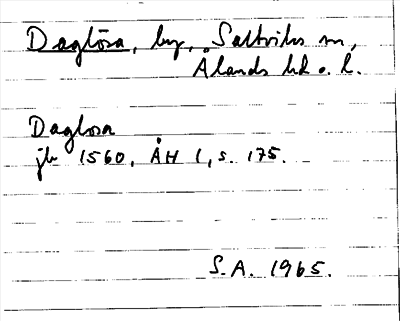 Daglösa, by, Saltviks sn,
Ålands hd o. l.
Daglosa
jb 1560, ÅH 1, s. 175.
S.A. 1965.